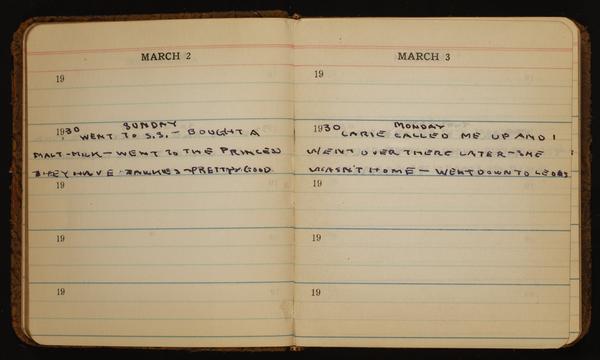 MARCH 2
19
SUNDAY
1930 WENT TO S.S. - BOUGHT A
MALT-MILK - WENT TO THE PRINCESS
THEY HAVE TALKIES - PRETTY GOOD
19
19
19
MARCH 3
19
MONDAY
1930 CALLED ME UP AND I
WENT OVER THERE LATER - SHE
WASN'T HOME - WENT DOWN TO
19
19
19